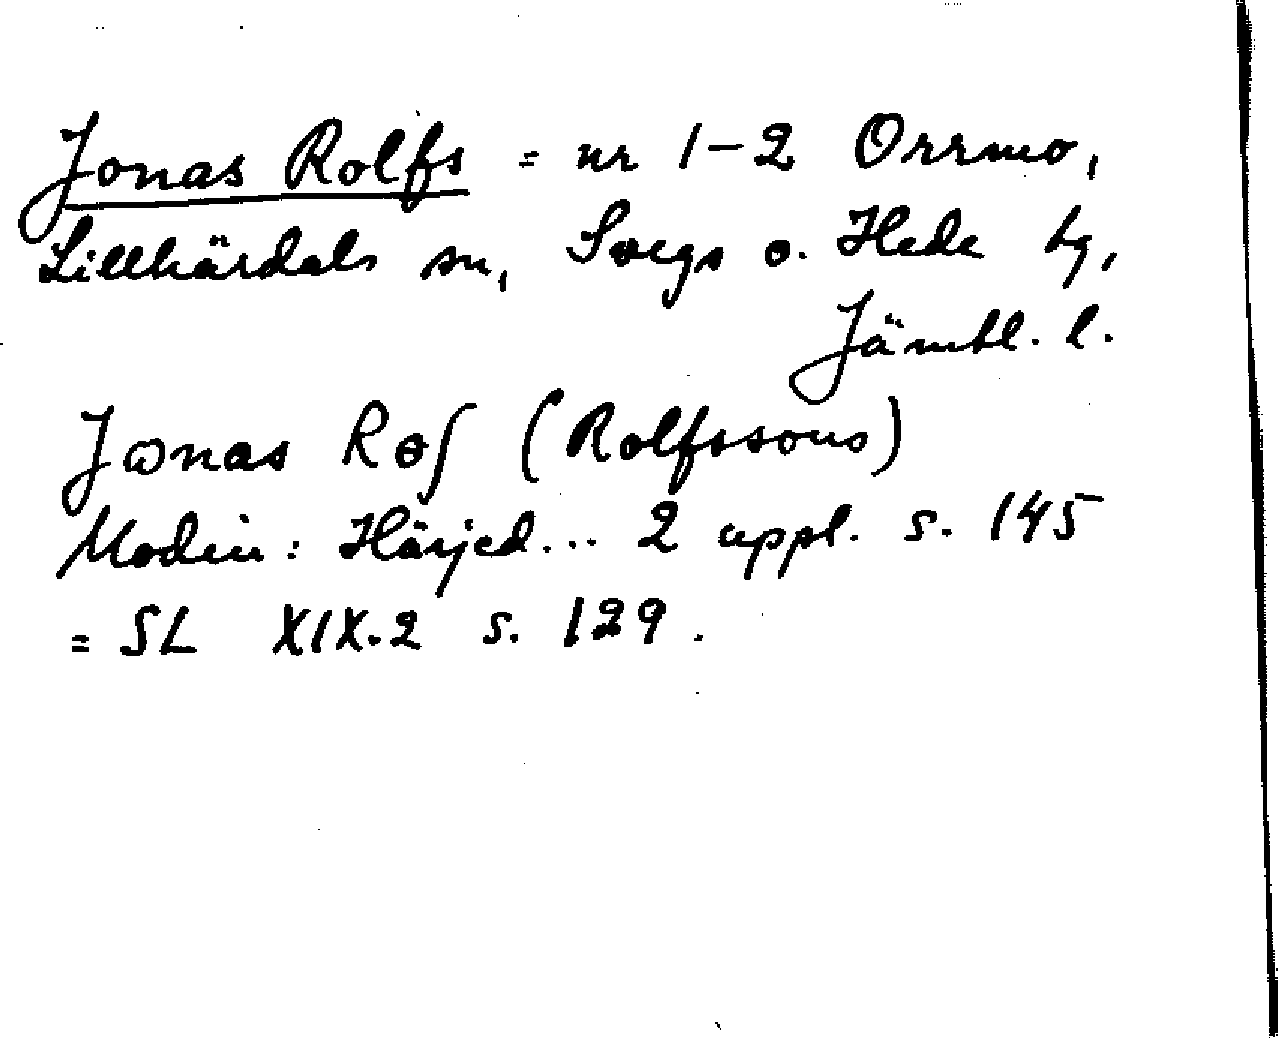 Jonas Rolfs = nr 1-2 Orrmo,
Lillhärdals sn, Svegs o. Hede tg,
Jämtl. l.
Jɷnas Rɵʃ (Rolfssons)
Modin: Härjed... 2 uppl. s. 145
= SL XIX.2 s. 129.